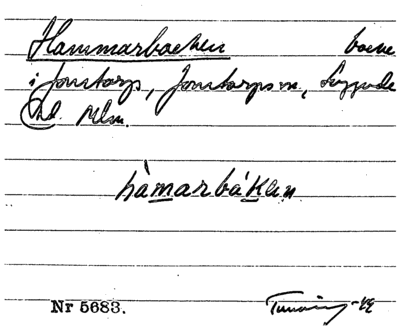 Hammarbacken backe
i Jonstorp, Jonstorps sn, Luggude
hd. Mlm.
hàmarbákan
Nr 5683.